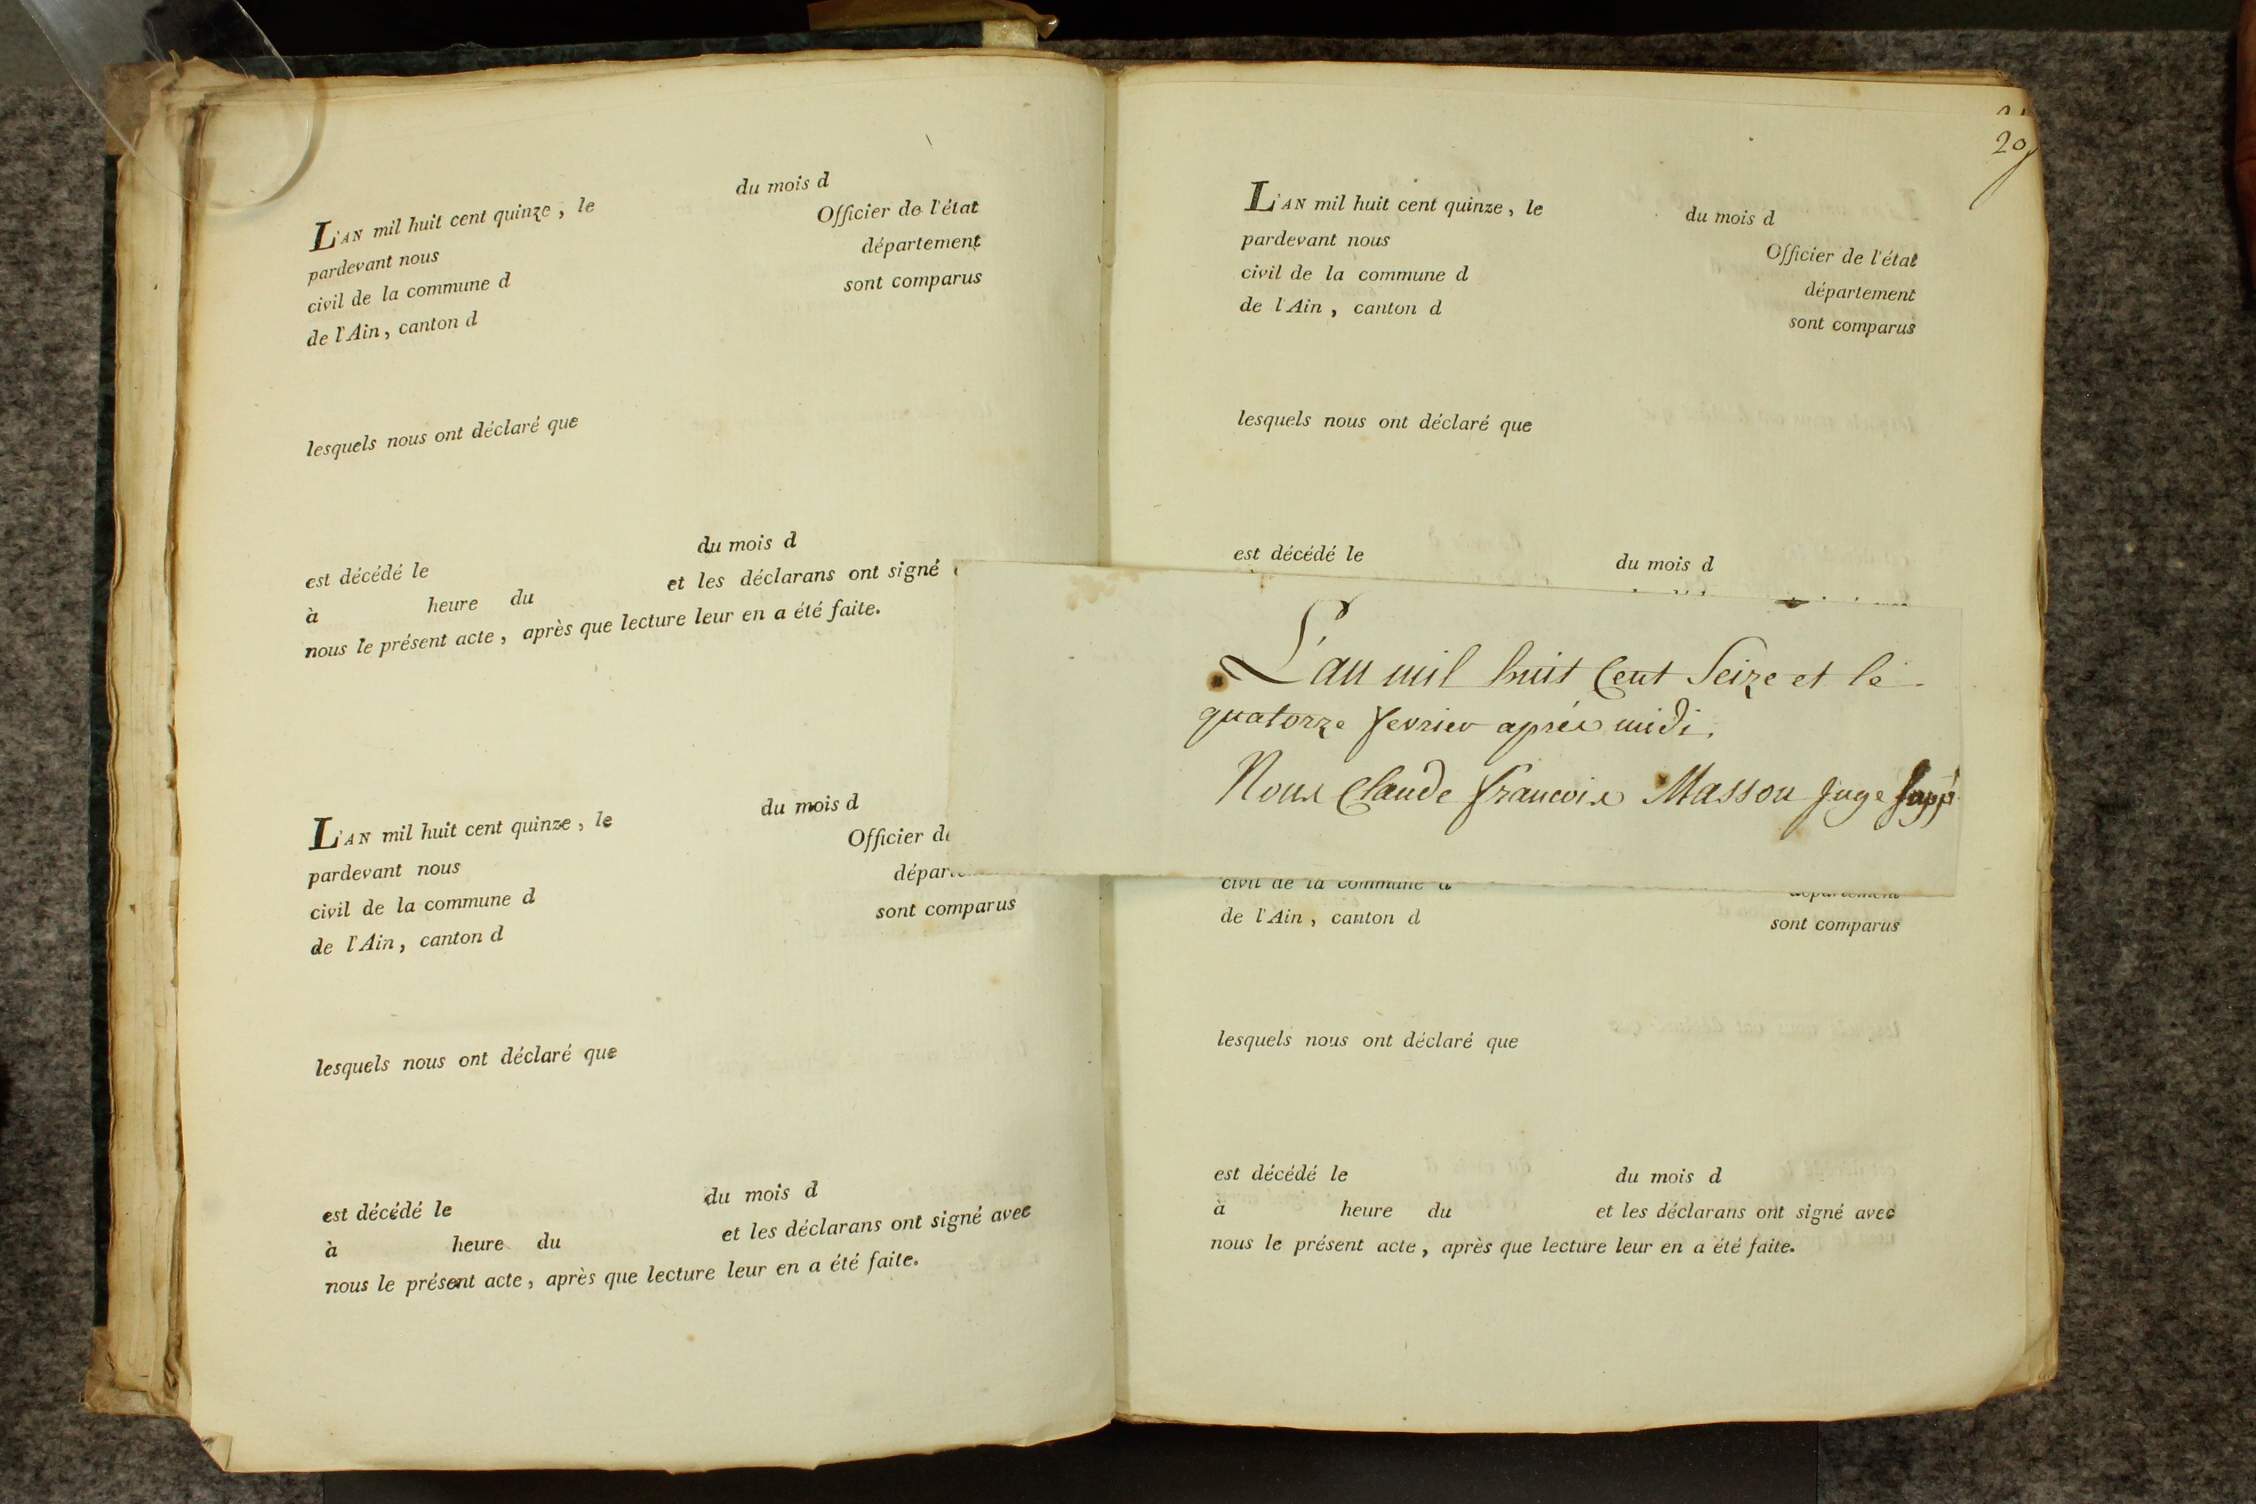 L'AN mil huit cent quinze, le du mois d
pardevant nous Officier de l'état
civil de la commune d département
de l'Ain, canton d sont comparus
lesquels nous ont déclaré que
est décédé le du mois d
à heure du et les déclarans ont signé
nous le présent acte, après que lecture leur en a été faite.
L'AN mil huit cent quinze, le du mois d
pardevant nous Officier de
civil de la commune d
de l'Ain, canton d sont comparus
lesquels nous ont déclaré que
est décédé le du mois d
à heure du et les déclarans ont signé avec
nous le présent acte, après que lecture leur en a été faite.
20
L'AN mil huit cent quinze, le du mois d
pardevant nous Officier de l'état
civil de la commune d département
de l'Ain, canton d sont comparus
lesquels nous ont déclaré que
est décédé le du mois d
L'an mil huit Cent Seize et le
quatorze fevrier après midi.
Nous Claude francois Masson Juge Supp
civil de la commune d département
de l'Ain, canton d sont comparus
lesquels nous ont déclaré que
est décédé le du mois d
à heure du et les déclarans ont signé avec
nous le présent acte, après que lecture leur en a été faite.